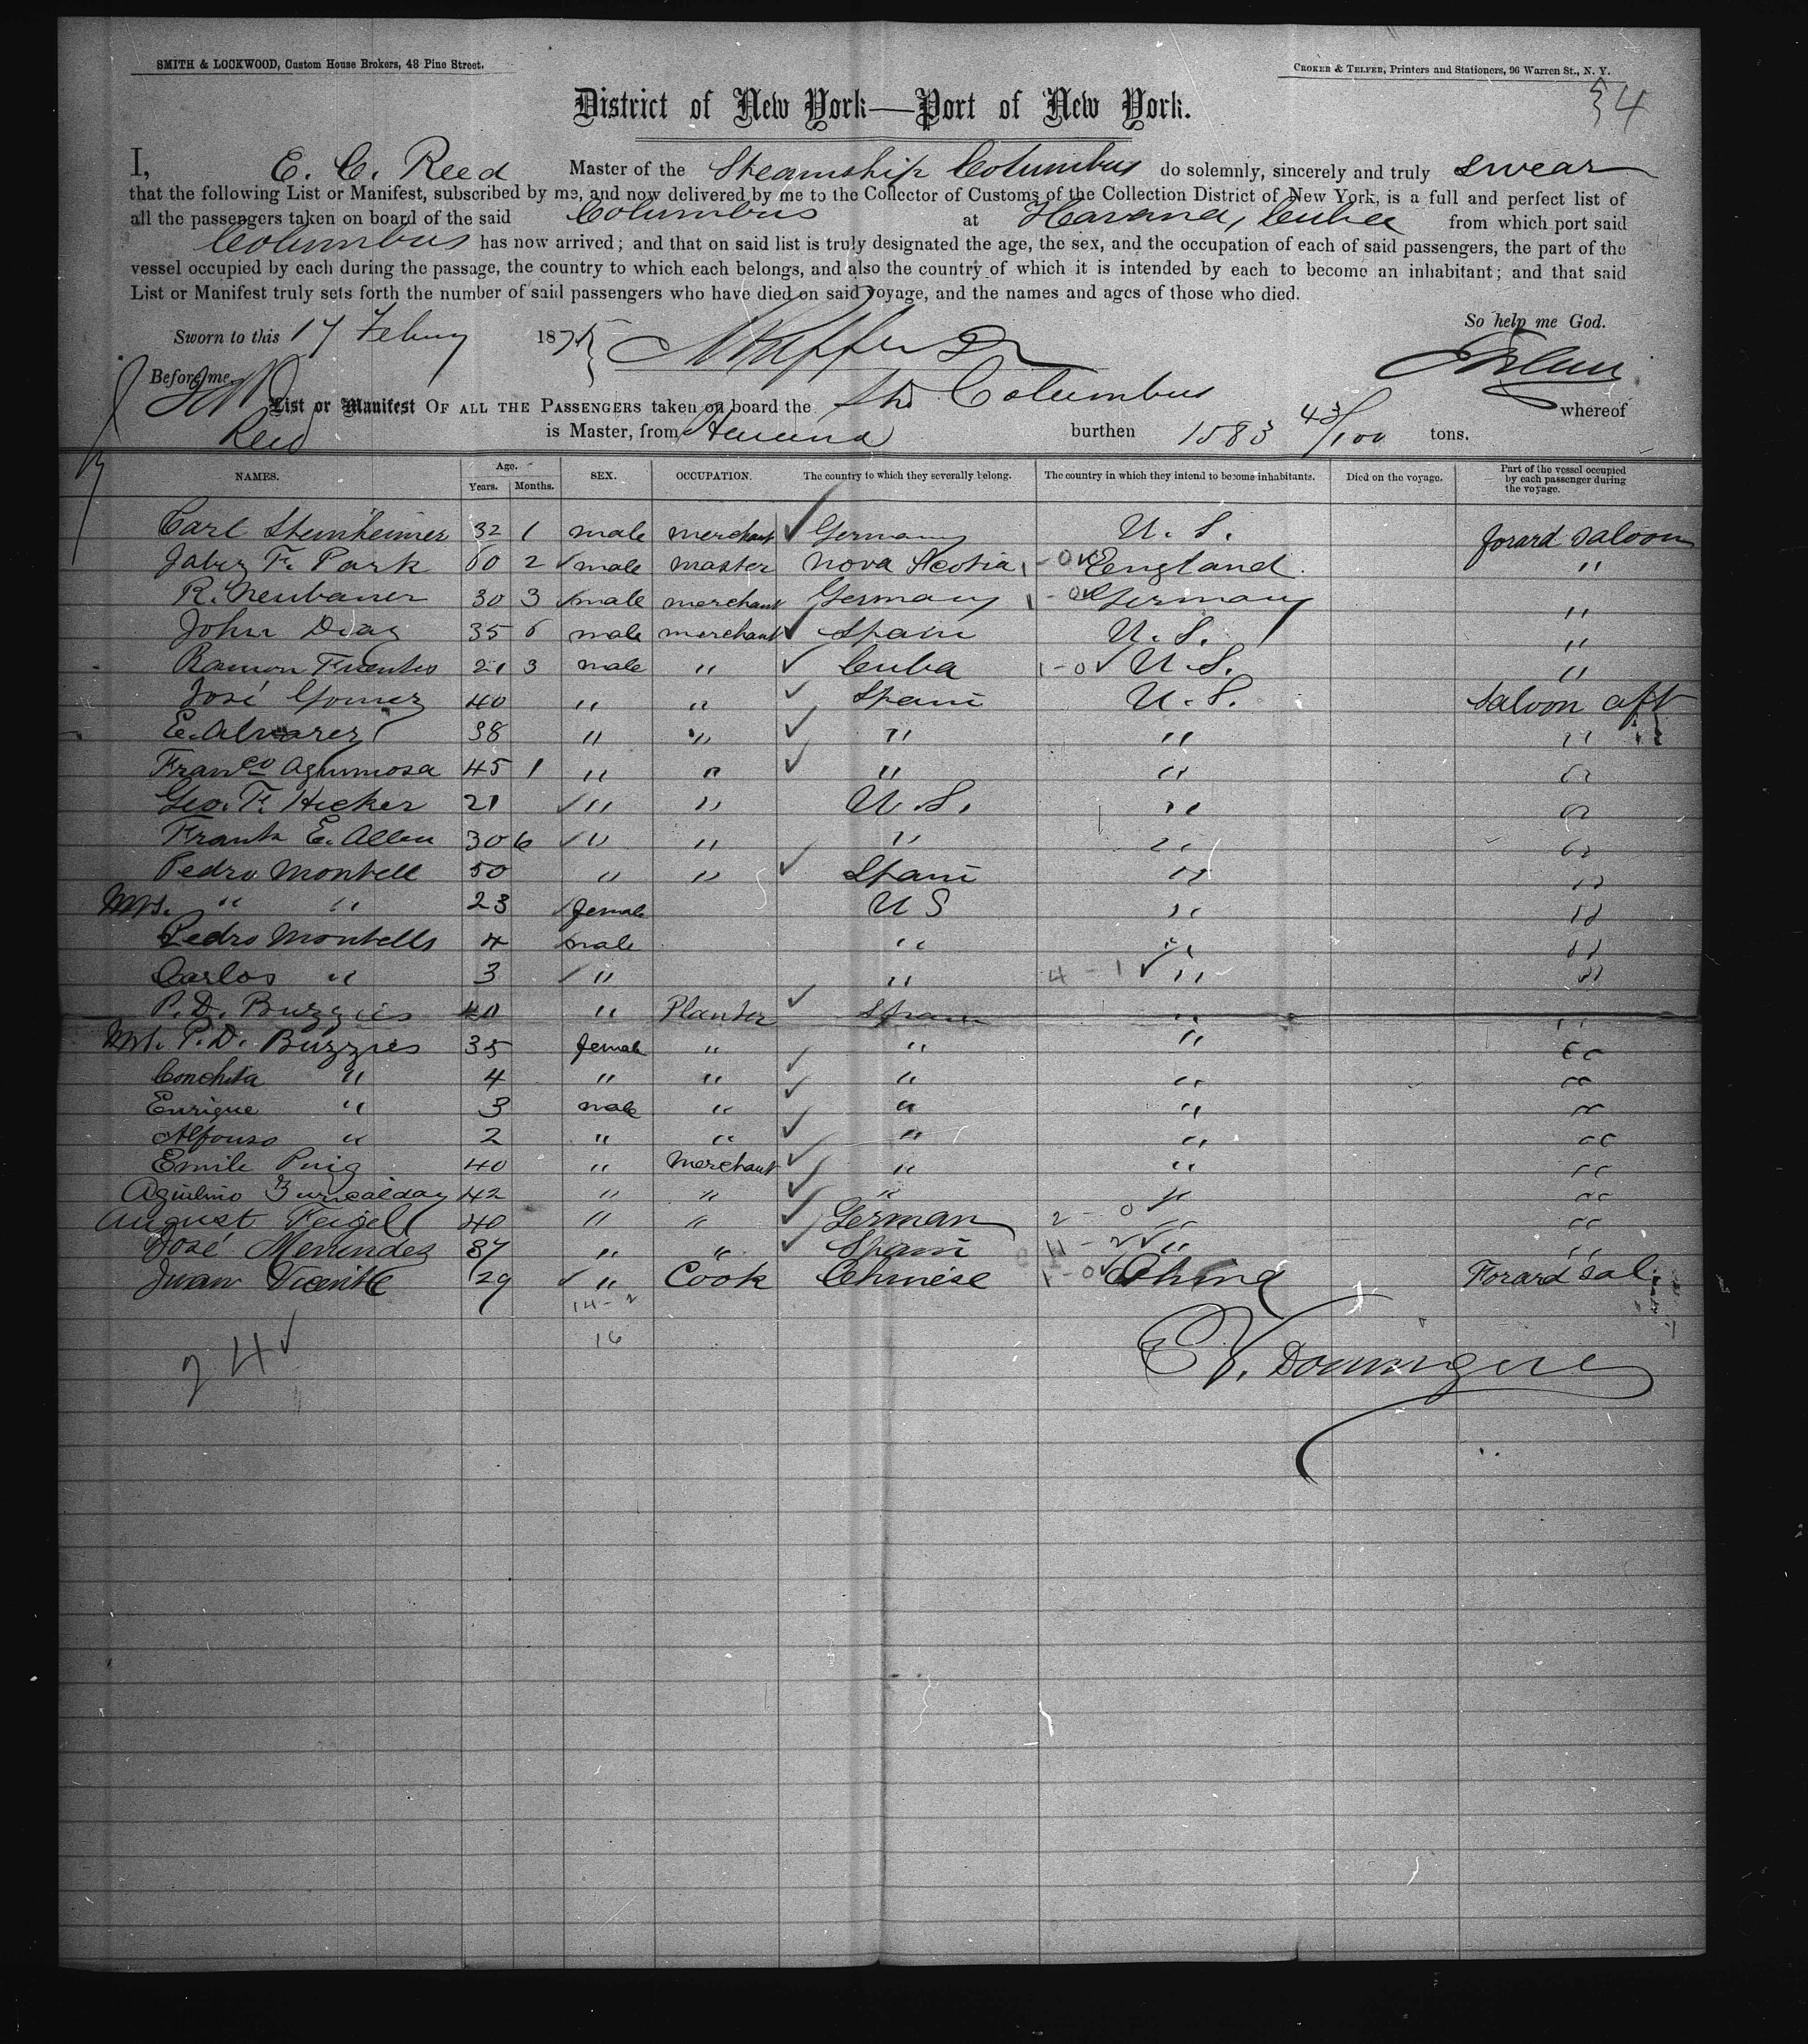 SMITH & LOCKWOOD, Custom House Brokers, 48 Pine Street.
CROKER & TELFER, Printers and Stationers, 96 Warren St., N. Y.
54
District of New York—Port of New York.
I, E. C. Reed Master of the Steamship Columbus do solemnly, sincerely and truly swear
that the following List or Manifest, subscribed by me, and now delivered by me to the Collector of Customs of the Collection District of New York, is a full and perfect list of
all the passengers taken on board of the said Columbus at Havana, Cuba from which port said
Columbus has now arrived; and that on said list is truly designated the age, the sex, and the occupation of each of said passengers, the part of the
vessel occupied by each during the passage, the country to which each belongs, and also the country of which it is intended by each to become an inhabitant; and that said
List or Manifest truly sets forth the number of said passengers who have died on said voyage, and the names and ages of those who died.
So help me God.
Sworn to this 17 1875
Before me,
List or Manifest OF ALL THE PASSENGERS taken on board the Columbus whereof
Reed is Master, from Havana burthen 1583 43/100 tons.
NAMES. Age. Years. Months. SEX. OCCUPATION. The country to which they severally belong. The country in which they intend to become inhabitants. Died on the voyage. Part of the vessel occupied by each passenger during the voyage.
Carl Steinheimer 32 1 male merchant Germany U. S. forard saloon
Jabez F. Park 60 2 male master Nova Scotia England "
R. Neubauer 30 3 male merchant Germany Germany "
John Diaz 35 6 male merchant Spain U. S. "
Ramon Fuentes 21 3 male " Cuba 1-0 U. S. "
José Gomez 40 " " Spain U. S. Saloon aft
E. Alvarez 38 " " " " " "
Franco 45 1 " " " " "
Geo. F. Hicker 21 " " U. S. " "
Frank E. Allen 30 6 " " " " "
Pedro Montell 50 " " Spain " "
Mrs. " " 23 female U S " "
Pedro Montells 4 male " " "
Carlos " 3 " " 4-1 " "
P. D. Buzzies 40 " Planter Spain " "
Mrs. P. D. Buzzies 35 female " " " "
Conchita " 4 " " " " "
Enrique " 3 male " " " "
Alfonso " 2 " " " " "
Emile Puig 40 " Merchant " " "
42 " " " " "
August Feigel 40 " " German 2-0 " "
José Menendez 37 " " Spain 11-2 " "
Juan Vicente 29 " Cook Chinese 1-0 China Forard sal.
14-2
16
24